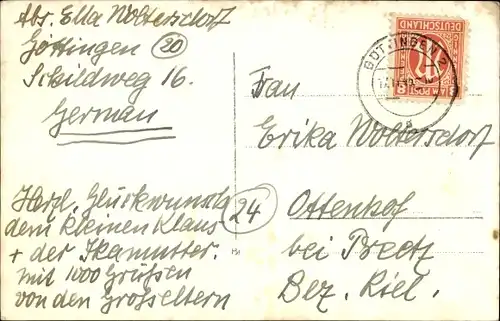 Abs. Ella Woltersdorf
Göttingen (20)
Schildweg 16.
German
Herzl. Glückwunsch
dem kleinen Klaus
+ der Ikamutter.
mit 1000 Grüßen
von den Großeltern
GÖTTINGEN 2
DEUTSCHLAND
AM POST
8 8
Frau
Erika Woltersdorf
(24) Ottenhof
bei Preetz
Bez. Kiel.